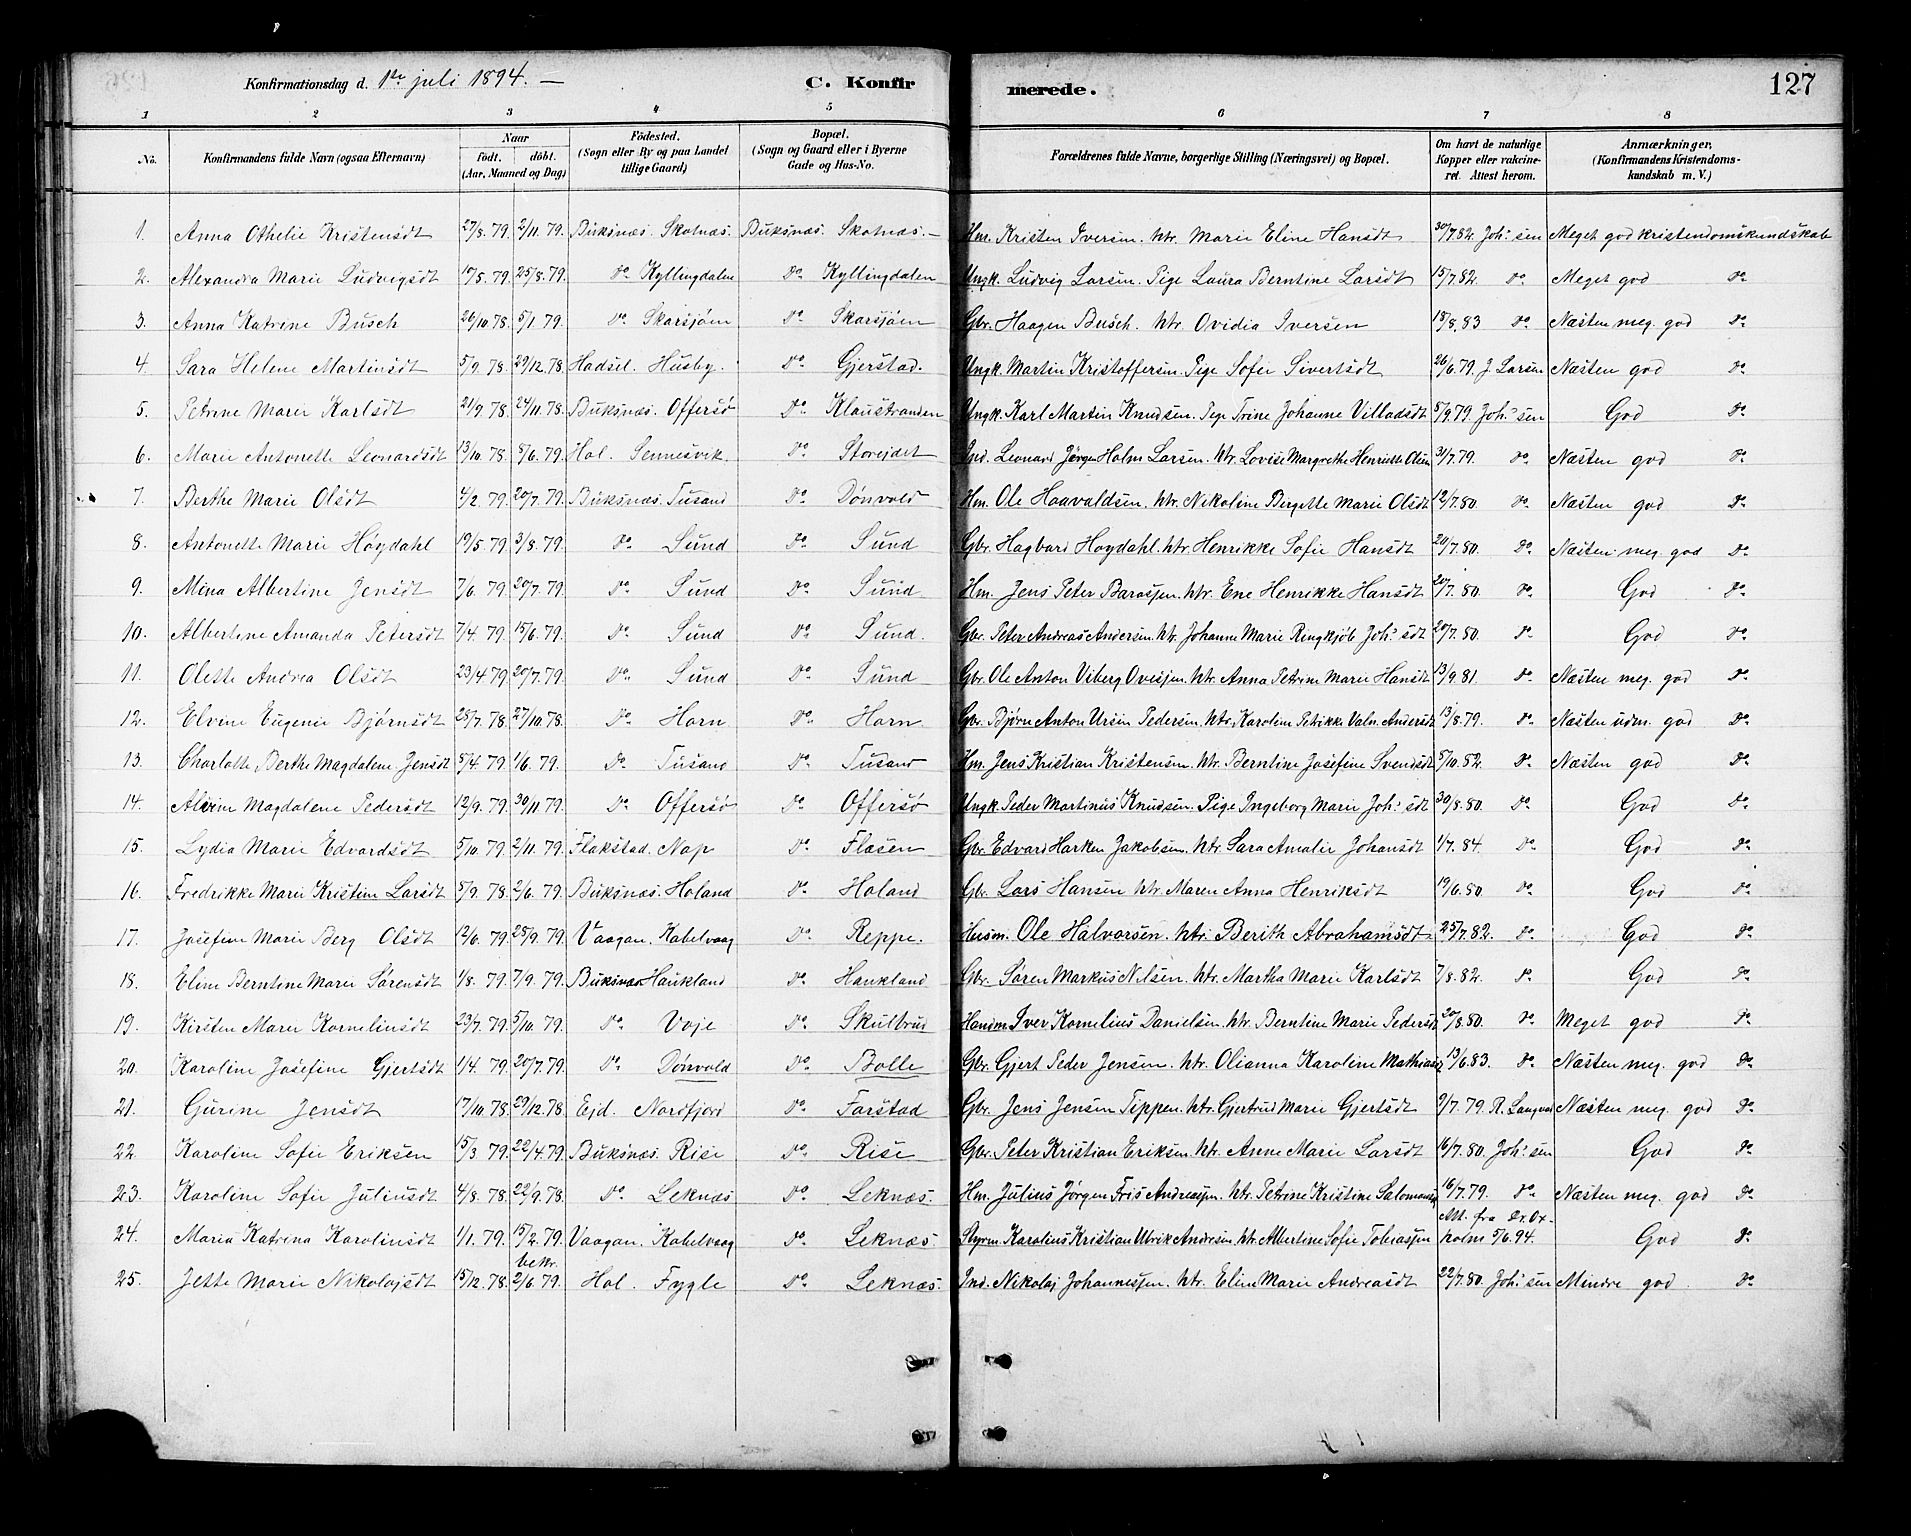 Konfirmationsdag d. 1ste juli 1894. —
C. Konfirmerede.
127
1 2 3 4 5 6 7 8
No. Konfirmandens fulde Navn (ogsaa Efternavn) Naar født. døbt. (Aar, Maaned og Dag) Fødested. (Sogn eller By og paa Landet tillige Gaard) Bopæl. (Sogn og Gaard eller i Byerne Gade og Hus-No. Forældrenes fulde Navne, borgerlige Stilling (Næringsvei) og Bopæl. Om havt de naturlige Kopper eller vakcineret. Attest herom. Anmærkninger, (Konfirmandens Kristendomskundskab m. V.)
1. Anna Othelie Kristensdt 27/8. 79. 2/11. 79. Buksnæs. Skotnæs. Buksnæs. Skotnæs.— Hm. Kristen Iversen. htr. Marie Eline Hansdt 30/7.82. Joh.sen Meget god kristendomskundskab
2. Alexandra Marie Ludvigsdt 17/5. 79. 25/8. 79. Do Kyllingdalen Do Kyllingdalen Ungk. Ludvig Larsen. Pige Laura Berntine Larsdt 15/7.82. Do Meget god Do
3. Anna Katrine Busch 26/10.78. 5/1. 79. Do Skarsjøen Do Skarsjøen Gbr. Haagen Busch. htr. Ovidia Iversen 18/8.83 Do Næsten meg. god Do
4. Sara Helene Martinsdt 5/9. 78. 29/12.78. Hadsel. Husby. Do Gjerstad. Ungk. Martin Kristoffersen. Pige Sofie Sivertsdt 26/6.79. J Larsen Næsten god Do
5. Petrine Marie Karlsdt 21/9. 78. 24/11.78. Buksnæs. Offersø Do Klaustranden Ungk. Karl Martin Knudsen. Pige Trine Johanne Villadsdt 5/9.79 Joh.sen God Do
6. Marie Antonette Leonardsdt 13/10.78. 8/6. 79. Hol. Sennesvik. Do Storeidet Ind. Leonard Jørgen Holm Larsen. htr. Lovise Margrethe Henriette Olsen 31/7.79. Do Næsten god Do
7. Berthe Marie Olsdt 4/2. 79. 20/7. 79. Buksnæs. Tusand Do Dønvold Hm. Ole Haavaldsen. htr. Nikoline Bergette Marie Olsdt 12/7.80. Do Næsten god Do
8. Antonette Marie Høydahl 19/5. 79. 3/8. 79. Do Sund Do Sund Gbr. Hagbard Høydahl. htr. Henrikke Sofie Hansdt 20/7.80. Do Næsten meg. god Do
9. Mina Albertine Jensdt 7/6. 79. 20/7. 79. Do Sund Do Sund Hm. Jens Peter Barassen. htr. Ene Henrikke Hansdt 20/7.80. Do God Do
10. Albertine Amanda Petersdt 7/4. 79. 15/6. 79. Do Sund Do Sund. Gbr. Peter Andreas Andersen. htr. Johanne Marie Ringkjøb Joh.sdt 20/7.80. Do God Do
11. Olette Andrea Olsdt 23/4 79. 20/7. 79. Do Sund Do Sund Gbr. Ole Anton Viberg Ovesen. htr. Anna Petrine Marie Hansdt 13/9.81. Do Næsten meg. god Do
12. Elvine Eugenie Bjørnsdt 28/7. 78. 27/10.78. Do Horn Do Horn. Gbr. Bjørn Anton Ursin Pedersen. htr. Karoline Petrikke Valn. Andersdt 13/8.79. Do Næsten udm. god Do
13. Charlotte Berthe Magdalene Jensdt 5/4. 79. 1/6. 79. Do Tusand Do Tusand Hm. Jens Kristian Kristensen. htr. Berntine Josefine Svendsdt 5/10.82. Do Næsten god Do
14. Magdalene Pedersdt 12/9. 79. 30/11. 79. Do Offersø Do Offersø Ungk. Peder Martinus Knudsen. Pige Ingeborg Marie Joh.sdt 30/8.80. Do God Do
15. Lydia Marie Edvardsdt 5/10.79. 2/11. 79. Flakstad. Nap Do Flæsen Gbr. Edvard Harken Jakobsen. htr. Sara Amalie Johansdt 1/7.84. Do God Do
16. Fredrikke Marie Kristine Larsdt 5/9. 78. 2/6. 79. Buksnæs. Holand Do Holand Gbr. Lars Hansen htr. Maren Anna Henriksdt 19/6.80. Do God Do
17. Josefine Marie Berg Olsdt 12/6. 79. 28/9. 79. Vaagan. Kabelvaag Do Reppe. Husm. Ole Halvorsen. htr. Berith Abrahamsdt 25/7.82. Do God Do
18. Eline Berntine Marie Sørensdt 1/8. 79. 7/9. 79. Buksnæs Haukland Do Haukland Gbr. Søren Markus Nilsen. htr. Martha Marie Karlsdt 7/8.82. Do God Do
19. Kirsten Marie Kornelinsdt 23/7. 79. 5/10. 79. Do Voje Do Skulbrud Handm. Iver Kornelius Danielsen. htr. Berntine Marie Pedersdt 20/8.80. Do Meget god Do
20. Karoline Josefine Gjertsdt 1/4. 79. 20/7. 79. Do Dønvold Do Bolle Gbr. Gjert Peder Jensen. htr. Olianna Karoline Mathiasd. 13/6.83. Do Næsten meg. god Do
21. Gurine Jensdt 17/10.78. 29/12.78. Ejd. Nordfjord Do Farstad Gbr. Jens Jensen Tippen. htr. Gjertrud Marie Gjertsdt 9/7.79. R. Næsten meg. god Do
22. Karoline Sofie Eriksen 15/3 79. 22/4.79. Buksnæs. Rise Do Rise Gbr. Peter Kristian Eriksen. htr. Anne Marie Larsdt 16/7.80. Joh.sen God Do
23. Karoline Sofie Juliusdt 4/8. 78. 22/9. 78. Do Leknæs Do Leknæs. Hm. Julius Jørgen Fris Andreassen. htr. Petrine Kristine Salomonsd. 16/7.79. Do Næsten meg. god Do
24. Maria Katrina Karolinsdt 1/1. 79. 15/2. 79. Vaagan. Kabelvaag Do Leknæs. Styrm. Karolius Kristian Ulrik Andresen. htr. Albertine Sofie Tobiassen Att. fra Dr. Oxholm 5/6.94. God Do
25. Jette Marie Nikolajsdt 15/12.78. bekr. 2/6 79. Hol. Fygle Do Leknæs. Ind. Nikolaj Johannessen. htr. Eline Marie Andreasdt 22/7.80. Joh.sen Mindre god Do